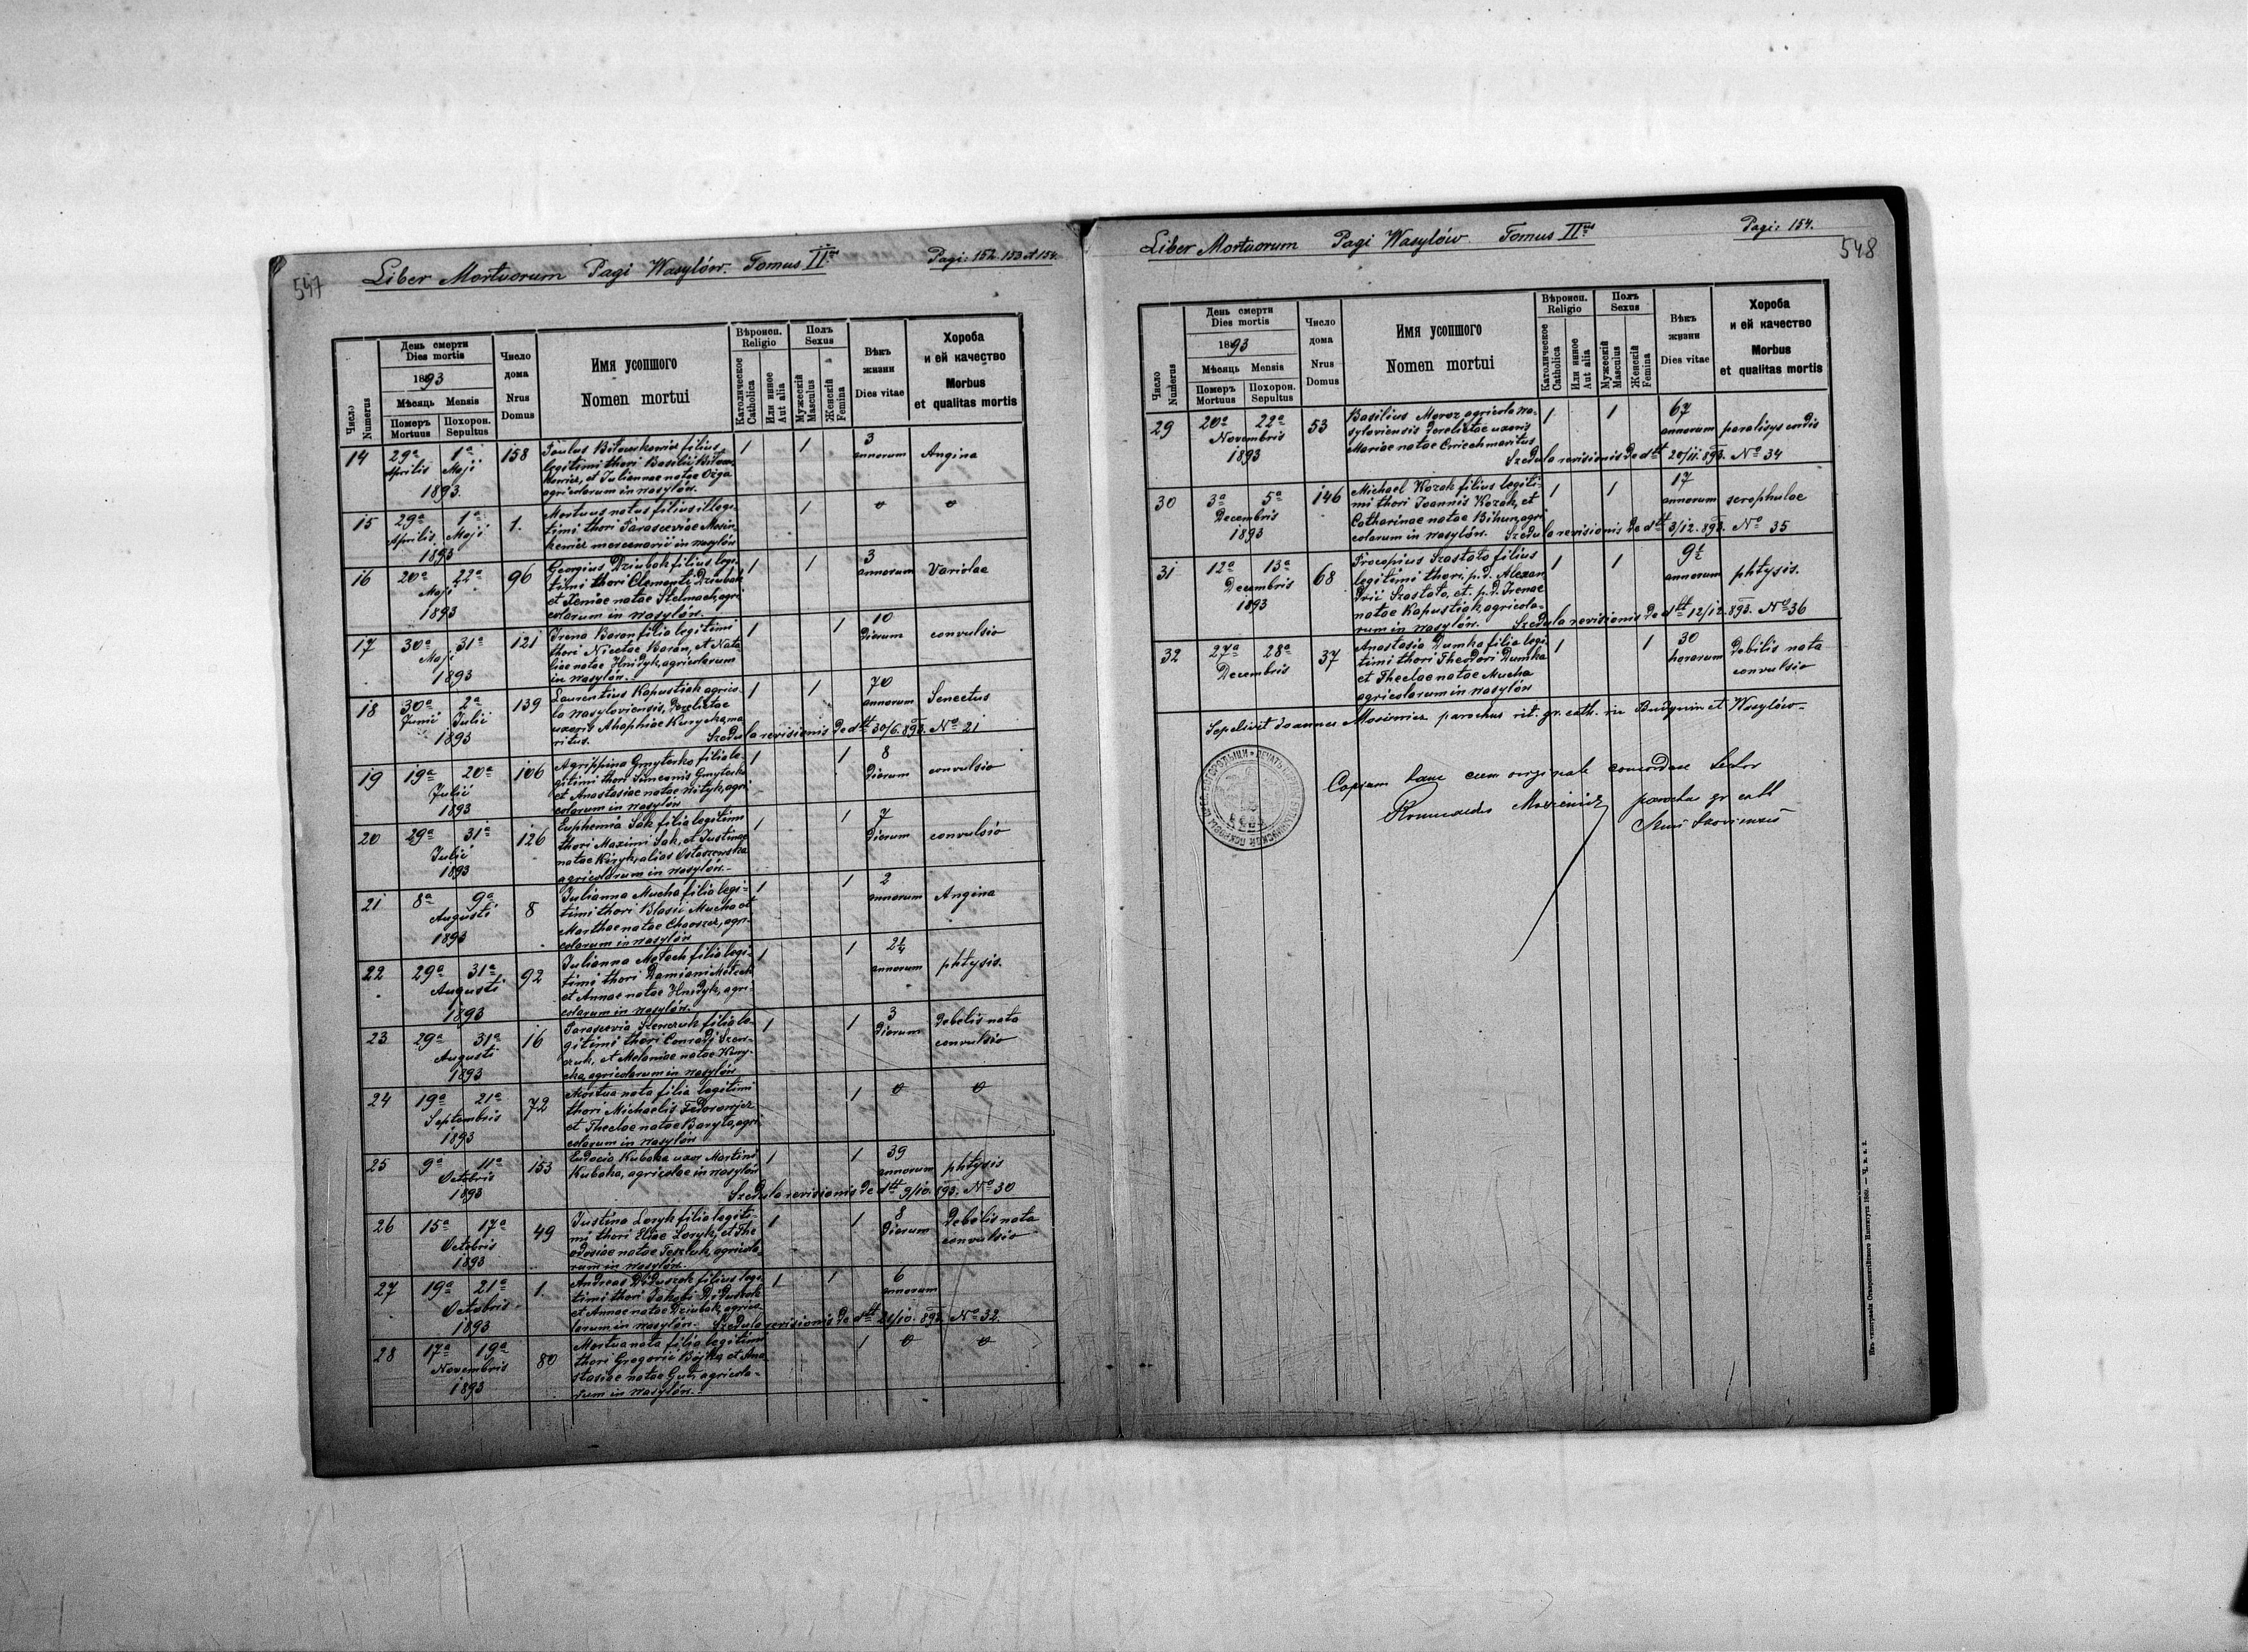 547
Liber Mortuorum Pagi Wasylów. Tomus II
Pagi: 152. 153 et 154.
Число
Numerus
День смерти
Dies mortis
1893
Мѣсяць Mensis
Померъ Похорон.
Mortuus Sepultus
Число
дома
Nrus
Domus
Имя усопшого
Nomen mortui
Вѣроисп.
Religio
Католическое
Catholica
Или инное
Aut alia
Полъ
Sexus
Мужескій
Masculus
Женскій
Femina
Вѣкъ
жизни
Dies vitae
Хороба
и ей качество
Morbus
et qualitas mortis
14 29a Aprilis 1a Maji 1893. 158
Paulus filius
legitimi thori Basilii
et Juliannae natae
agricolarum in Wasylów.
1 1 3 annorum Angina
15 29a Aprilis 1a Maji 1893 1.
Mortuus natus filius illegi-
timi thori Parasceviae
mercenarii in Wasylów
1
16 20a 22a Maji 1893 96
Georgius Dziubak filius legi-
timi thori Clementi Dziubak
et Xeniae natae Stelmach, agri-
colarum in Wasylów.
1 1 3 annorum Variolae
17 30a 31a Maji 1893 121
Irena Baran filia legitimi
thori Nicetae Baran, et Nata-
liae natae Hnidyk, agricolarum
in Wasylów.
1 1 10 Dierum convulsio
18 30a Junii 2a Julii 1893 139
Laurentius Kapustiak agrico-
la Wasyloviensis, derelictae
uxoris Ahaphiae ma-
ritus.
Szedula revisionis de dtt 30/6. 893. No 21
1 1 70 annorum Senectus
19 19a 20a Julii 1893 106
Agrippina Gmyterko filia le-
gitimi thori Simeonis Gmyterko
et Anastasiae natae agri-
colarum in Wasylów
1 1 8 Dierum convulsio
20 29a 31a Julii 1893 126
Euphemia Sak filia legitimi
thori Maximi Sak, et Justinae
natae alias
agricolarum in Wasylów.
1 1 7 Dierum convulsio
21 8a 9a Augusti 1893 8
Julianna Mucha filia legi-
timi thori Blasii Mucha et
Marthae natae agri-
colarum in Wasylów
1 1 2 annorum Angina
22 29a 31a Augusti 1893 92
Julianna filia legi-
timi thori Damiani
et Annae natae Hnidyk, agri-
colarum in Wasylów.
1 1 2 1/4 annorum phtysis.
23 29a 31a Augusti 1893 16
Parascevia filia le-
gitimi thori Conradi
et Melaniae natae
agricolarum in Wasylów
1 1 3 Dierum Debilis nata
convulsio
24 19a 21a Septembris 1893 72
Mortua nata filia legitimi
thori Michaelis
et Theclae natae Baryta, agri-
colarum in Wasylów
1
25 9a 11a Octobris 1893 153
Eudocia Kubaka uxor Martini
Kubaka, agricolae in Wasylów
Szedula revisionis de dtt 9/10. 893. No 30
1 1 39 annorum phtysis
26 15a 17a Octobris 1893 49
Justina Loryk filia legiti-
mi thori Eliae Loryk, et The-
odosiae natae agricola-
rum in Wasylów.
1 1 8 Dierum Debilis nata
convulsio
27 19a 21a Octobris 1893 1.
Andreas filius legi-
timi thori Jakobi
et Annae natae Dziubak, agrico-
larum in Wasylów. Szedula revisionis de dtt 21/10. 893. No 32.
1 1 6 annorum
28 17a 19a Novembris 1893 80
Mortua nata filia legitimi
thori Gregorii Bojko, et Ana-
stasiae natae agricola-
rum in Wasylów.
1
Liber Mortuorum Pagi Wasylów. Tomus II
Pagi: 154.
548
Число
Numerus
День смерти
Dies mortis
1893
Мѣсяць Mensis
Померъ Похорон.
Mortuus Sepultus
Число
дома
Nrus
Domus
Имя усопшого
Nomen mortui
Вѣроисп.
Religio
Католическое
Catholica
Или инное
Aut alia
Полъ
Sexus
Мужескій
Masculus
Женскій
Femina
Вѣкъ
жизни
Dies vitae
Хороба
и ей качество
Morbus
et qualitas mortis
29 20a 22a Novembris 1893 53
Basilius Moroz agricola Wa-
syloviensis derelictae uxoris
Mariae natae maritus
Szedula revisionis de dtt 20/11. 893. No 34
1 1 67 annorum paralisys cordis
30 3a 5a Decembris 1893 146
Michael Kozak filius legiti-
mi thori Joannis Kozak, et
Catharinae natae Bihun, agri-
colarum in Wasylów. Szedula revisionis de dtt 3/12. 893. No 35
1 1 17 annorum scrophulae
31 12a 13a Decembris 1893 68
Procopius Szostato filius
legitimi thori p.d. Alexan-
drii Szostato, et p.d. Irenae
natae Kapustiak agricola-
rum in Wasylów. Szedula revisionis de dtt 12/12. 893. No 36
1 1 9 1/2 annorum phtysis.
32 27a 28a Decembris 37
Anastasia Dumka filia legi-
timi thori Theodori Dumka
et Theclae natae Mucha
agricolarum in Wasylów
1 1 30 horarum Debilis nata
convulsio
Sepelivit Joannes parochus rit. gr. cath. in Budynin et Wasylów
Copiam hanc cum originali concordare testor
Romualdus parochus gr cath